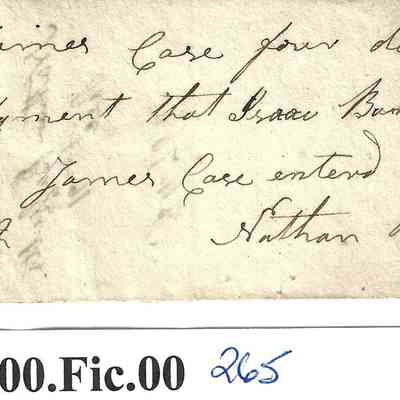 James Case four do
gment that Isaac Ban
James Case enterd
Nathan
00.Fic.00 265